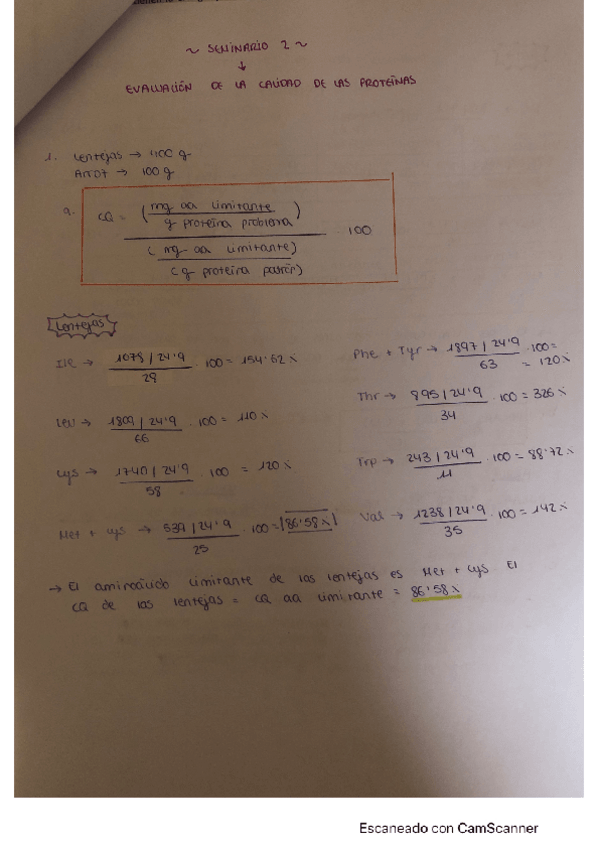 ~ SEMINARIO 2 ~
↓
EVALUACIÓN DE LA CALIDAD DE LAS PROTEÍNAS
1. Lentejas → 400 g
Arroz → 100 g
a. CQ = (mg aa limitante / g proteína problema) / (mg aa limitante) / (g proteína patrón) · 100
Lentejas
Ile → 1078 / 24'9 / 28 · 100 = 154'62 %
Leu → 1809 / 24'9 / 66 · 100 = 110 %
Cys → 1740 / 24'9 / 58 · 100 = 120 %
Met + Cys → 539 / 24'9 / 25 · 100 = 86'58 %
Phe + Tyr → 1897 / 24'9 / 63 · 100 = = 120 %
Thr → 895 / 24'9 / 34 · 100 = 326 %
Trp → 243 / 24'9 / 11 · 100 = 88'72 %
Val → 1238 / 24'9 / 35 · 100 = 142 %
→ El aminoácido limitante de las lentejas es Met + Cys El
CQ de las lentejas = CQ aa limitante = 86'58 %
Escaneado con CamScanner